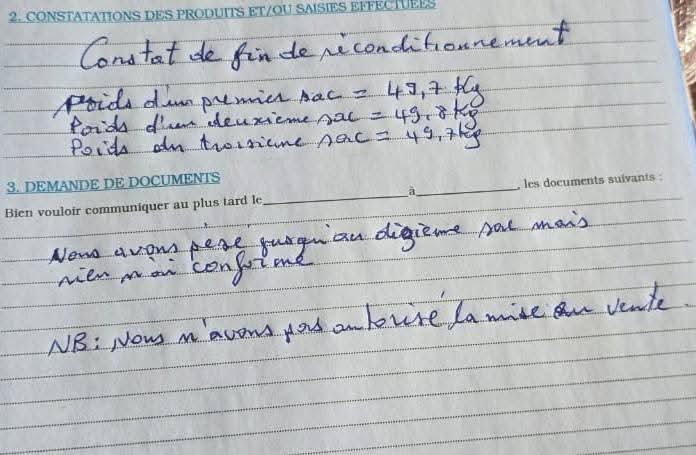 2. CONSTATATIONS DES PRODUITS ET/OU SAISIES EFFECTUEES
Constat de fin de réconditionnement
Poids d'un premier sac = 49,7 Kg
Poids d'un deuxième sac = 49,8 Kg
Poids du troisième sac = 49,7 kg
3. DEMANDE DE DOCUMENTS
Bien vouloir communiquer au plus tard le à , les documents suivants :
Nous avons pésé jusqu'au dizième sac mais
rien conforme
NB : Nous n'avons pas autorisé la mise en vente.